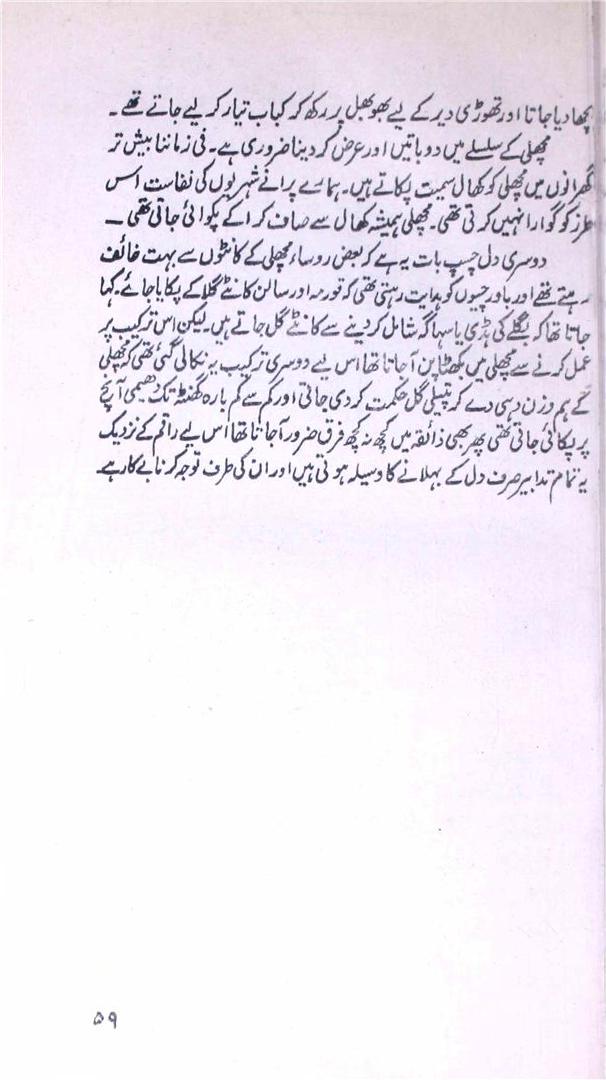 بچھا دیا جاتا اور تھوڑی دیر کے لیے بھوبھل پر رکھ کر کباب تیار کر لیے جاتے تھے۔
مچھلی کے سلسلے میں دو باتیں اور عرض کر دینا ضروری ہے۔ فی زماننا بیش تر
گھرانوں میں مچھلی کو کھال سمیت پکاتے ہیں۔ ہمارے پرانے شہریوں کی نفاست اس
طرز کو گوارا نہیں کرتی تھی۔ مچھلی ہمیشہ کھال سے صاف کرا کے پکوائی جاتی تھی۔
دوسری دل چسپ بات یہ ہے کہ بعض روساء مچھلی کے کانٹوں سے بہت خائف
رہتے تھے اور باورچیوں کو ہدایت رہتی تھی کہ قورمہ اور سالن کانٹے گلا کے پکایا جائے۔ کہا
جاتا تھا کہ بگلے کی ہڈی یا سہاگہ شامل کر دینے سے کانٹے گل جاتے ہیں۔ لیکن اس ترکیب پر
عمل کرنے سے مچھلی میں کھٹاپن آ جاتا تھا اس لیے دوسری ترکیب یہ نکالی گئی تھی کہ مچھلی
کے ہم وزن دہی دے کر پتیلی گل حکمت کر دی جاتی اور کم سے کم بارہ گھنٹہ تک دھیمی آنچ
پر پکائی جاتی تھی پھر بھی ذائقہ میں کچھ نہ کچھ فرق ضرور آ جاتا تھا اس لیے راقم کے نزدیک
یہ تمام تدابیر صرف دل کے بہلانے کا وسیلہ ہوتی ہیں اور ان کی طرف توجہ کرنا بے کار ہے۔
۵۹